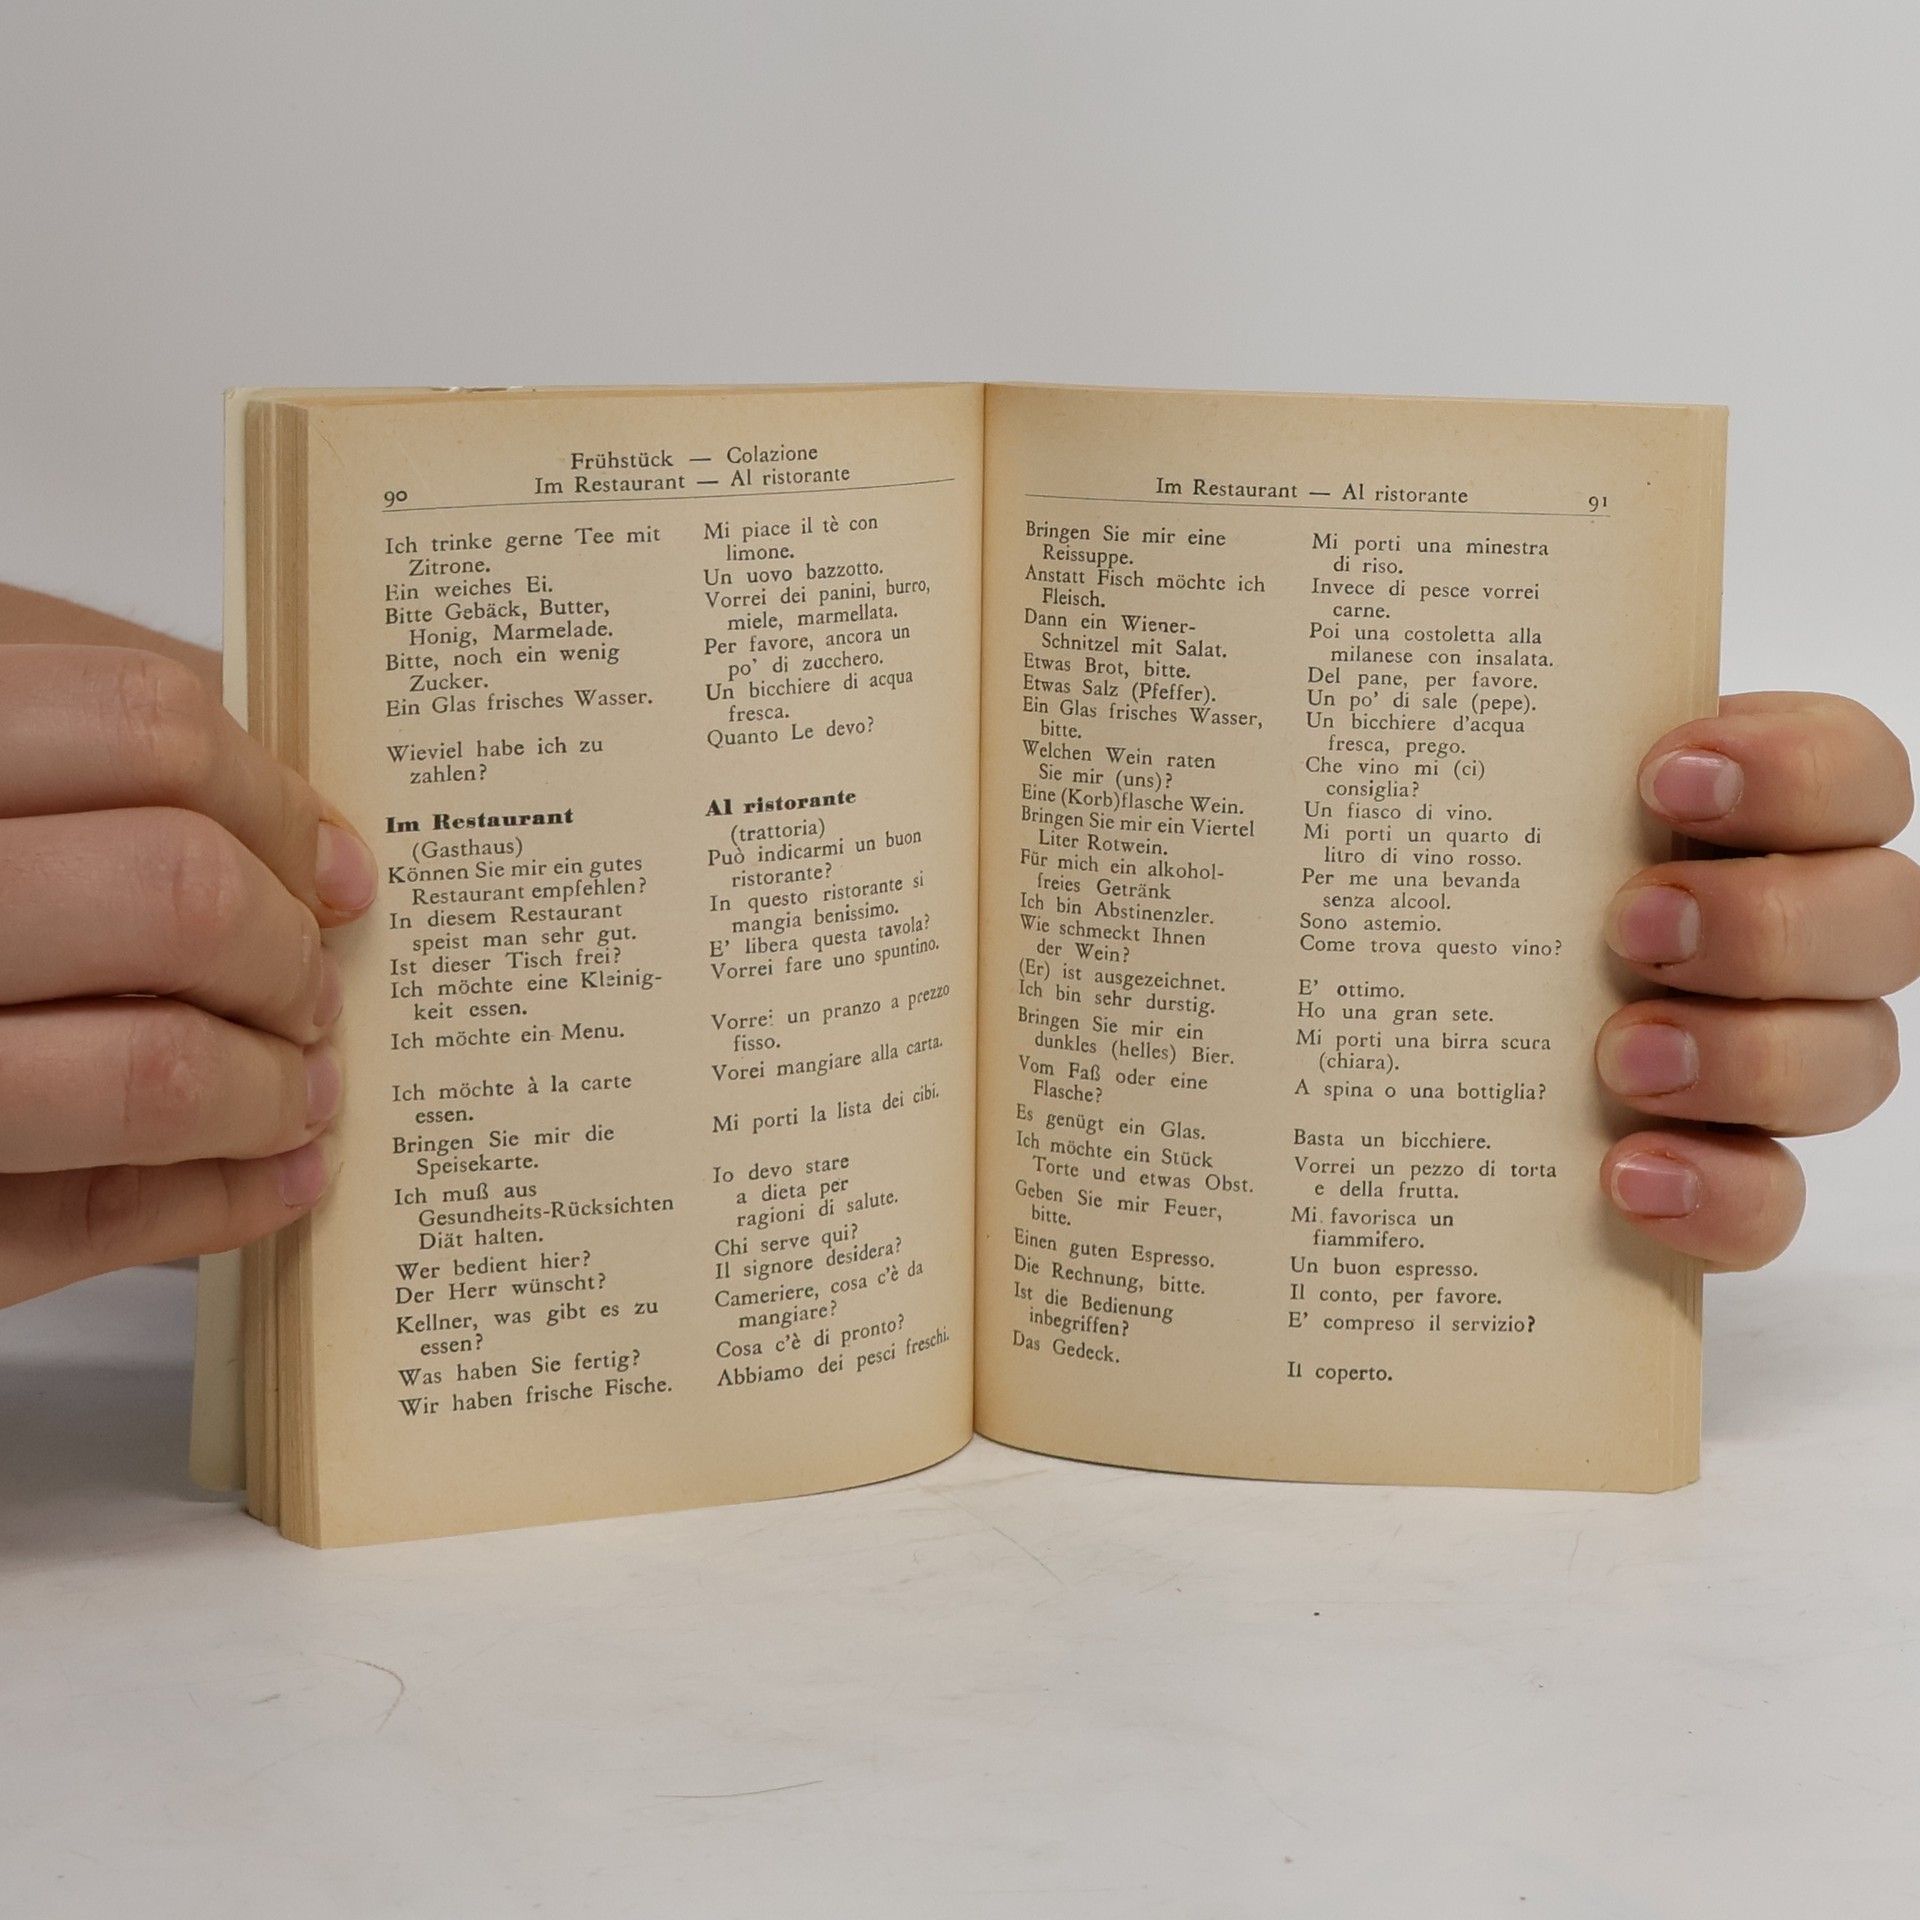 Frühstück — Colazione
90 Im Restaurant — Al ristorante
Ich trinke gerne Tee mit
Zitrone.
Ein weiches Ei.
Bitte Gebäck, Butter,
Honig, Marmelade.
Bitte, noch ein wenig
Zucker.
Ein Glas frisches Wasser.
Wieviel habe ich zu
zahlen?
Im Restaurant
(Gasthaus)
Können Sie mir ein gutes
Restaurant empfehlen?
In diesem Restaurant
speist man sehr gut.
Ist dieser Tisch frei?
Ich möchte eine Kleinig-
keit essen.
Ich möchte ein Menu.
Ich möchte à la carte
essen.
Bringen Sie mir die
Speisekarte.
Ich muß aus
Gesundheits-Rücksichten
Diät halten.
Wer bedient hier?
Der Herr wünscht?
Kellner, was gibt es zu
essen?
Was haben Sie fertig?
Wir haben frische Fische.
Mi piace il tè con
limone.
Un uovo bazzotto.
Vorrei dei panini, burro,
miele, marmellata.
Per favore, ancora un
po' di zucchero.
Un bicchiere di acqua
fresca.
Quanto Le devo?
Al ristorante
(trattoria)
Può indicarmi un buon
ristorante?
In questo ristorante si
mangia benissimo.
E' libera questa tavola?
Vorrei fare uno spuntino.
Vorrei un pranzo a prezzo
fisso.
Vorei mangiare alla carta.
Mi porti la lista dei cibi.
Io devo stare
a dieta per
ragioni di salute.
Chi serve qui?
Il signore desidera?
Cameriere, cosa c'è da
mangiare?
Cosa c'è di pronto?
Abbiamo dei pesci freschi.
Im Restaurant — Al ristorante 91
Bringen Sie mir eine
Reissuppe.
Anstatt Fisch möchte ich
Fleisch.
Dann ein Wiener-
Schnitzel mit Salat.
Etwas Brot, bitte.
Etwas Salz (Pfeffer).
Ein Glas frisches Wasser,
bitte.
Welchen Wein raten
Sie mir (uns)?
Eine (Korb)flasche Wein.
Bringen Sie mir ein Viertel
Liter Rotwein.
Für mich ein alkohol-
freies Getränk
Ich bin Abstinenzler.
Wie schmeckt Ihnen
der Wein?
(Er) ist ausgezeichnet.
Ich bin sehr durstig.
Bringen Sie mir ein
dunkles (helles) Bier.
Vom Faß oder eine
Flasche?
Es genügt ein Glas.
Ich möchte ein Stück
Torte und etwas Obst.
Geben Sie mir Feuer,
bitte.
Einen guten Espresso.
Die Rechnung, bitte.
Ist die Bedienung
inbegriffen?
Das Gedeck.
Mi porti una minestra
di riso.
Invece di pesce vorrei
carne.
Poi una costoletta alla
milanese con insalata.
Del pane, per favore.
Un po' di sale (pepe).
Un bicchiere d'acqua
fresca, prego.
Che vino mi (ci)
consiglia?
Un fiasco di vino.
Mi porti un quarto di
litro di vino rosso.
Per me una bevanda
senza alcool.
Sono astemio.
Come trova questo vino?
E' ottimo.
Ho una gran sete.
Mi porti una birra scura
(chiara).
A spina o una bottiglia?
Basta un bicchiere.
Vorrei un pezzo di torta
e della frutta.
Mi favorisca un
fiammifero.
Un buon espresso.
Il conto, per favore.
E' compreso il servizio?
Il coperto.